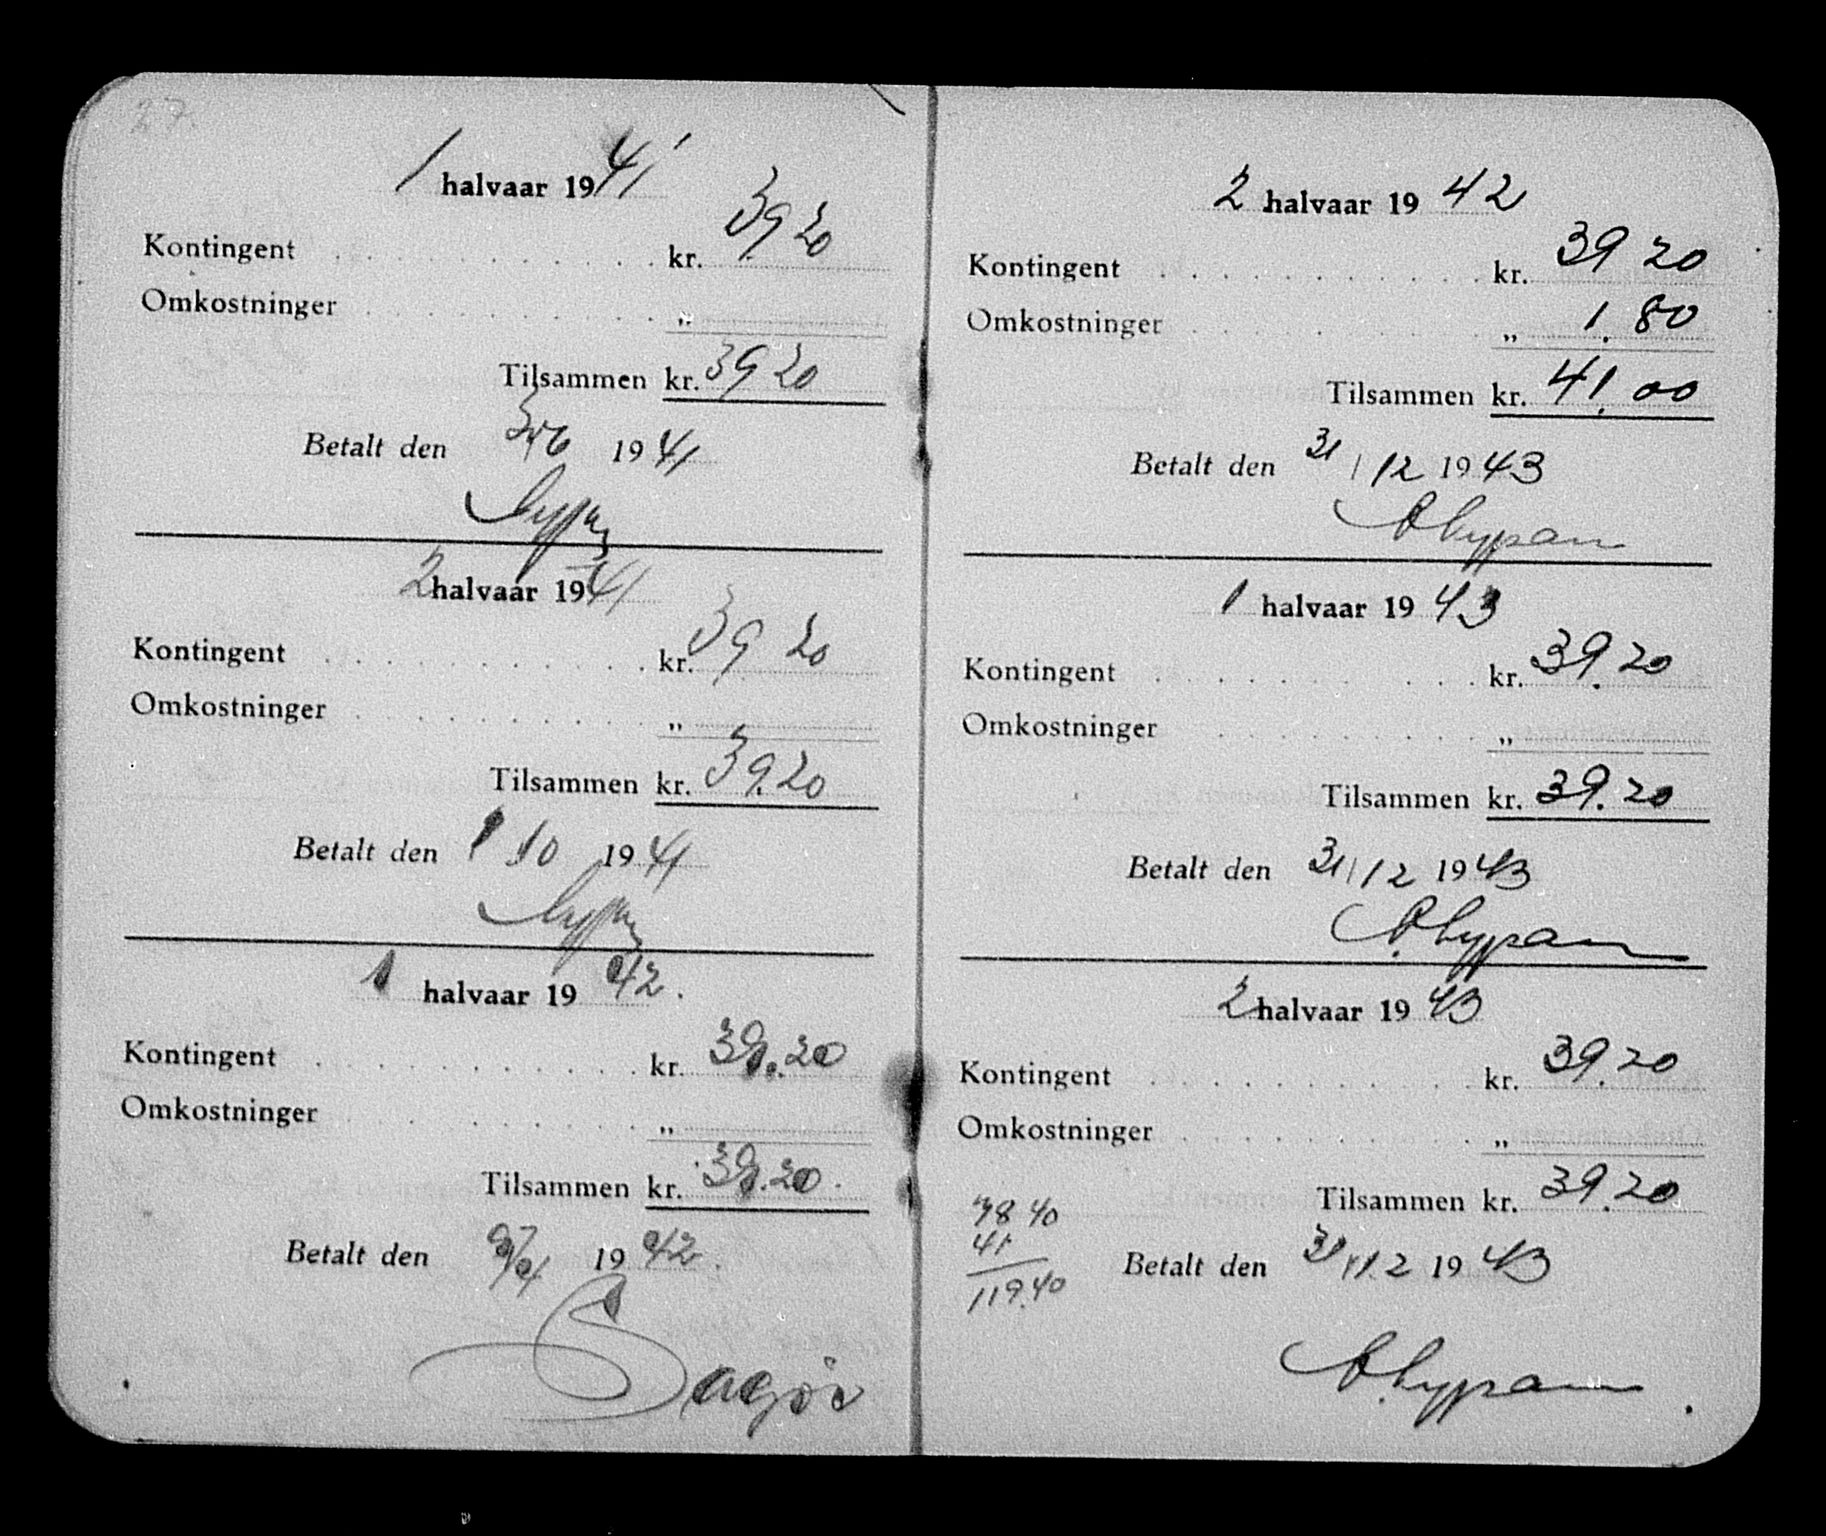 27.
1 halvaar 1941
Kontingent kr. 39 20
Omkostninger „
Tilsammen kr. 39 20
Betalt den 3/6 1941
2 halvaar 1941
Kontingent kr. 39 20
Omkostninger „
Tilsammen kr. 39.20
Betalt den 1 10 1941
1 halvaar 19 42.
Kontingent kr. 39.20
Omkostninger „
Tilsammen kr. 39.20.
Betalt den 19 42.
2 halvaar 19 42
Kontingent kr. 39 20
Omkostninger „ 1.80
Tilsammen kr. 41.00
Betalt den 31/12 1943
1 halvaar 19 43
Kontingent kr. 39.20
Omkostninger „
Tilsammen kr. 39.20
Betalt den 31/12 1943
2 halvaar 19 43
Kontingent kr. 39.20
Omkostninger „
Tilsammen kr. 39.20
78 40
41
119.40
Betalt den 31/12 19 43